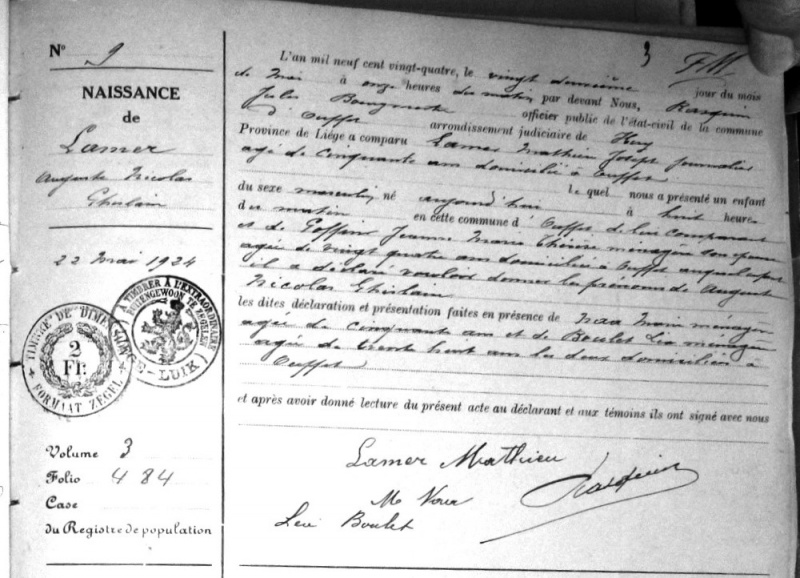 N° 9
NAISSANCE
de
Lamer
Auguste Nicolas
Ghislain
22 mai 1924
TIMBRE DE DIMENSION
2
Fr.
FORMAAT ZEGEL
A TIMBRER A L'EXTRAORDINAIRE
BUITENGEWOON TE ZEGELEN
LUIK
Volume 3
Folio 484
Case
du Registre de population
3 FM
L'an mil neuf cent vingt-quatre, le vingt deuxième jour du mois
de Mai à onze heures du matin par devant Nous, Rasquin
Jules officier public de l'état-civil de la commune
d'Ouffet arrondissement judiciaire de Huy
Province de Liége a comparu Lamer Mathieu Joseph journalier
agé de cinquante ans domicilié à Ouffet
le quel nous a présenté un enfant
du sexe masculin né aujourd'hui à huit heures
du matin en cette commune d'Ouffet de lui comparant
et de Goffin Jeanne Marie Thérèse ménagère son épouse
agée de vingt quatre ans domiciliée à Ouffet auquel
il a déclaré vouloir donner les prénoms de Auguste
Nicolas Ghislain
les dites déclaration et présentation faites en présence de Marie ménagère
agée de cinquante ans et de Boulet Léa ménagère
agée de trente huit ans les deux domiciliées à
Ouffet
et après avoir donné lecture du présent acte au déclarant et aux témoins ils ont signé avec nous
Lamer Mathieu
Rasquin
M
Boulet